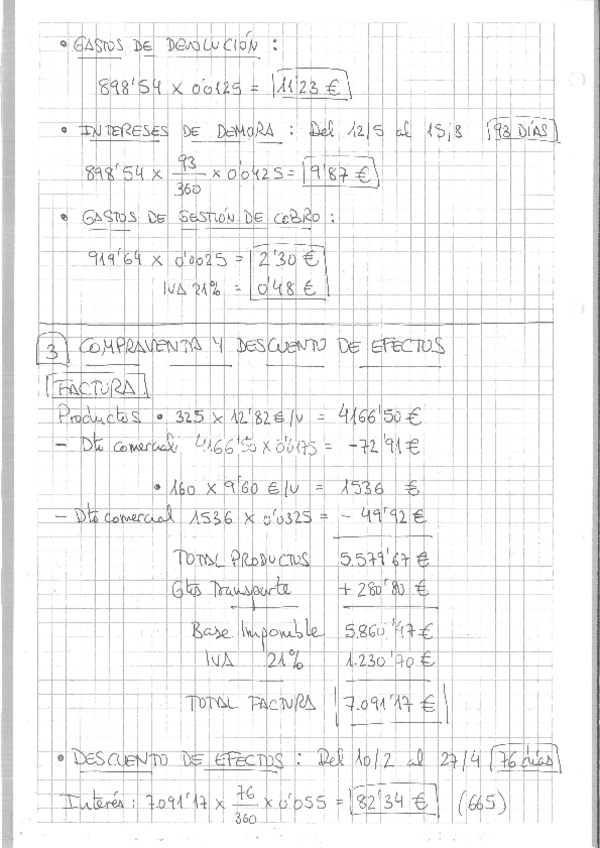 • GASTOS DE DEVOLUCIÓN :
898'54 x 0'0125 = 11'23 €
• INTERESES DE DEMORA : Del 12/5 al 15/8 93 DÍAS
898'54 x 93/360 x 0'0425 = 9'87 €
• GASTOS DE GESTIÓN DE COBRO :
919'64 x 0'0025 = 2'30 €
IVA 21% = 0'48 €
3 COMPRAVENTA Y DESCUENTO DE EFECTOS
FACTURA
Productos • 325 x 12'82 €/u = 4166'50 €
- Dto comercial: 4166'50 x 0'0175 = -72'91 €
• 160 x 9'60 €/u = 1536 €
- Dto comercial 1536 x 0'0325 = - 49'92 €
TOTAL PRODUCTOS 5.579'67 €
Gtos Transporte + 280'80 €
Base Imponible 5.860'47 €
IVA 21% 1.230'70 €
TOTAL FACTURA 7.091'17 €
• DESCUENTO DE EFECTOS : Del 10/2 al 27/4 76 días
Interés : 7091'17 x 76/360 x 0'055 = 82'34 € (665)